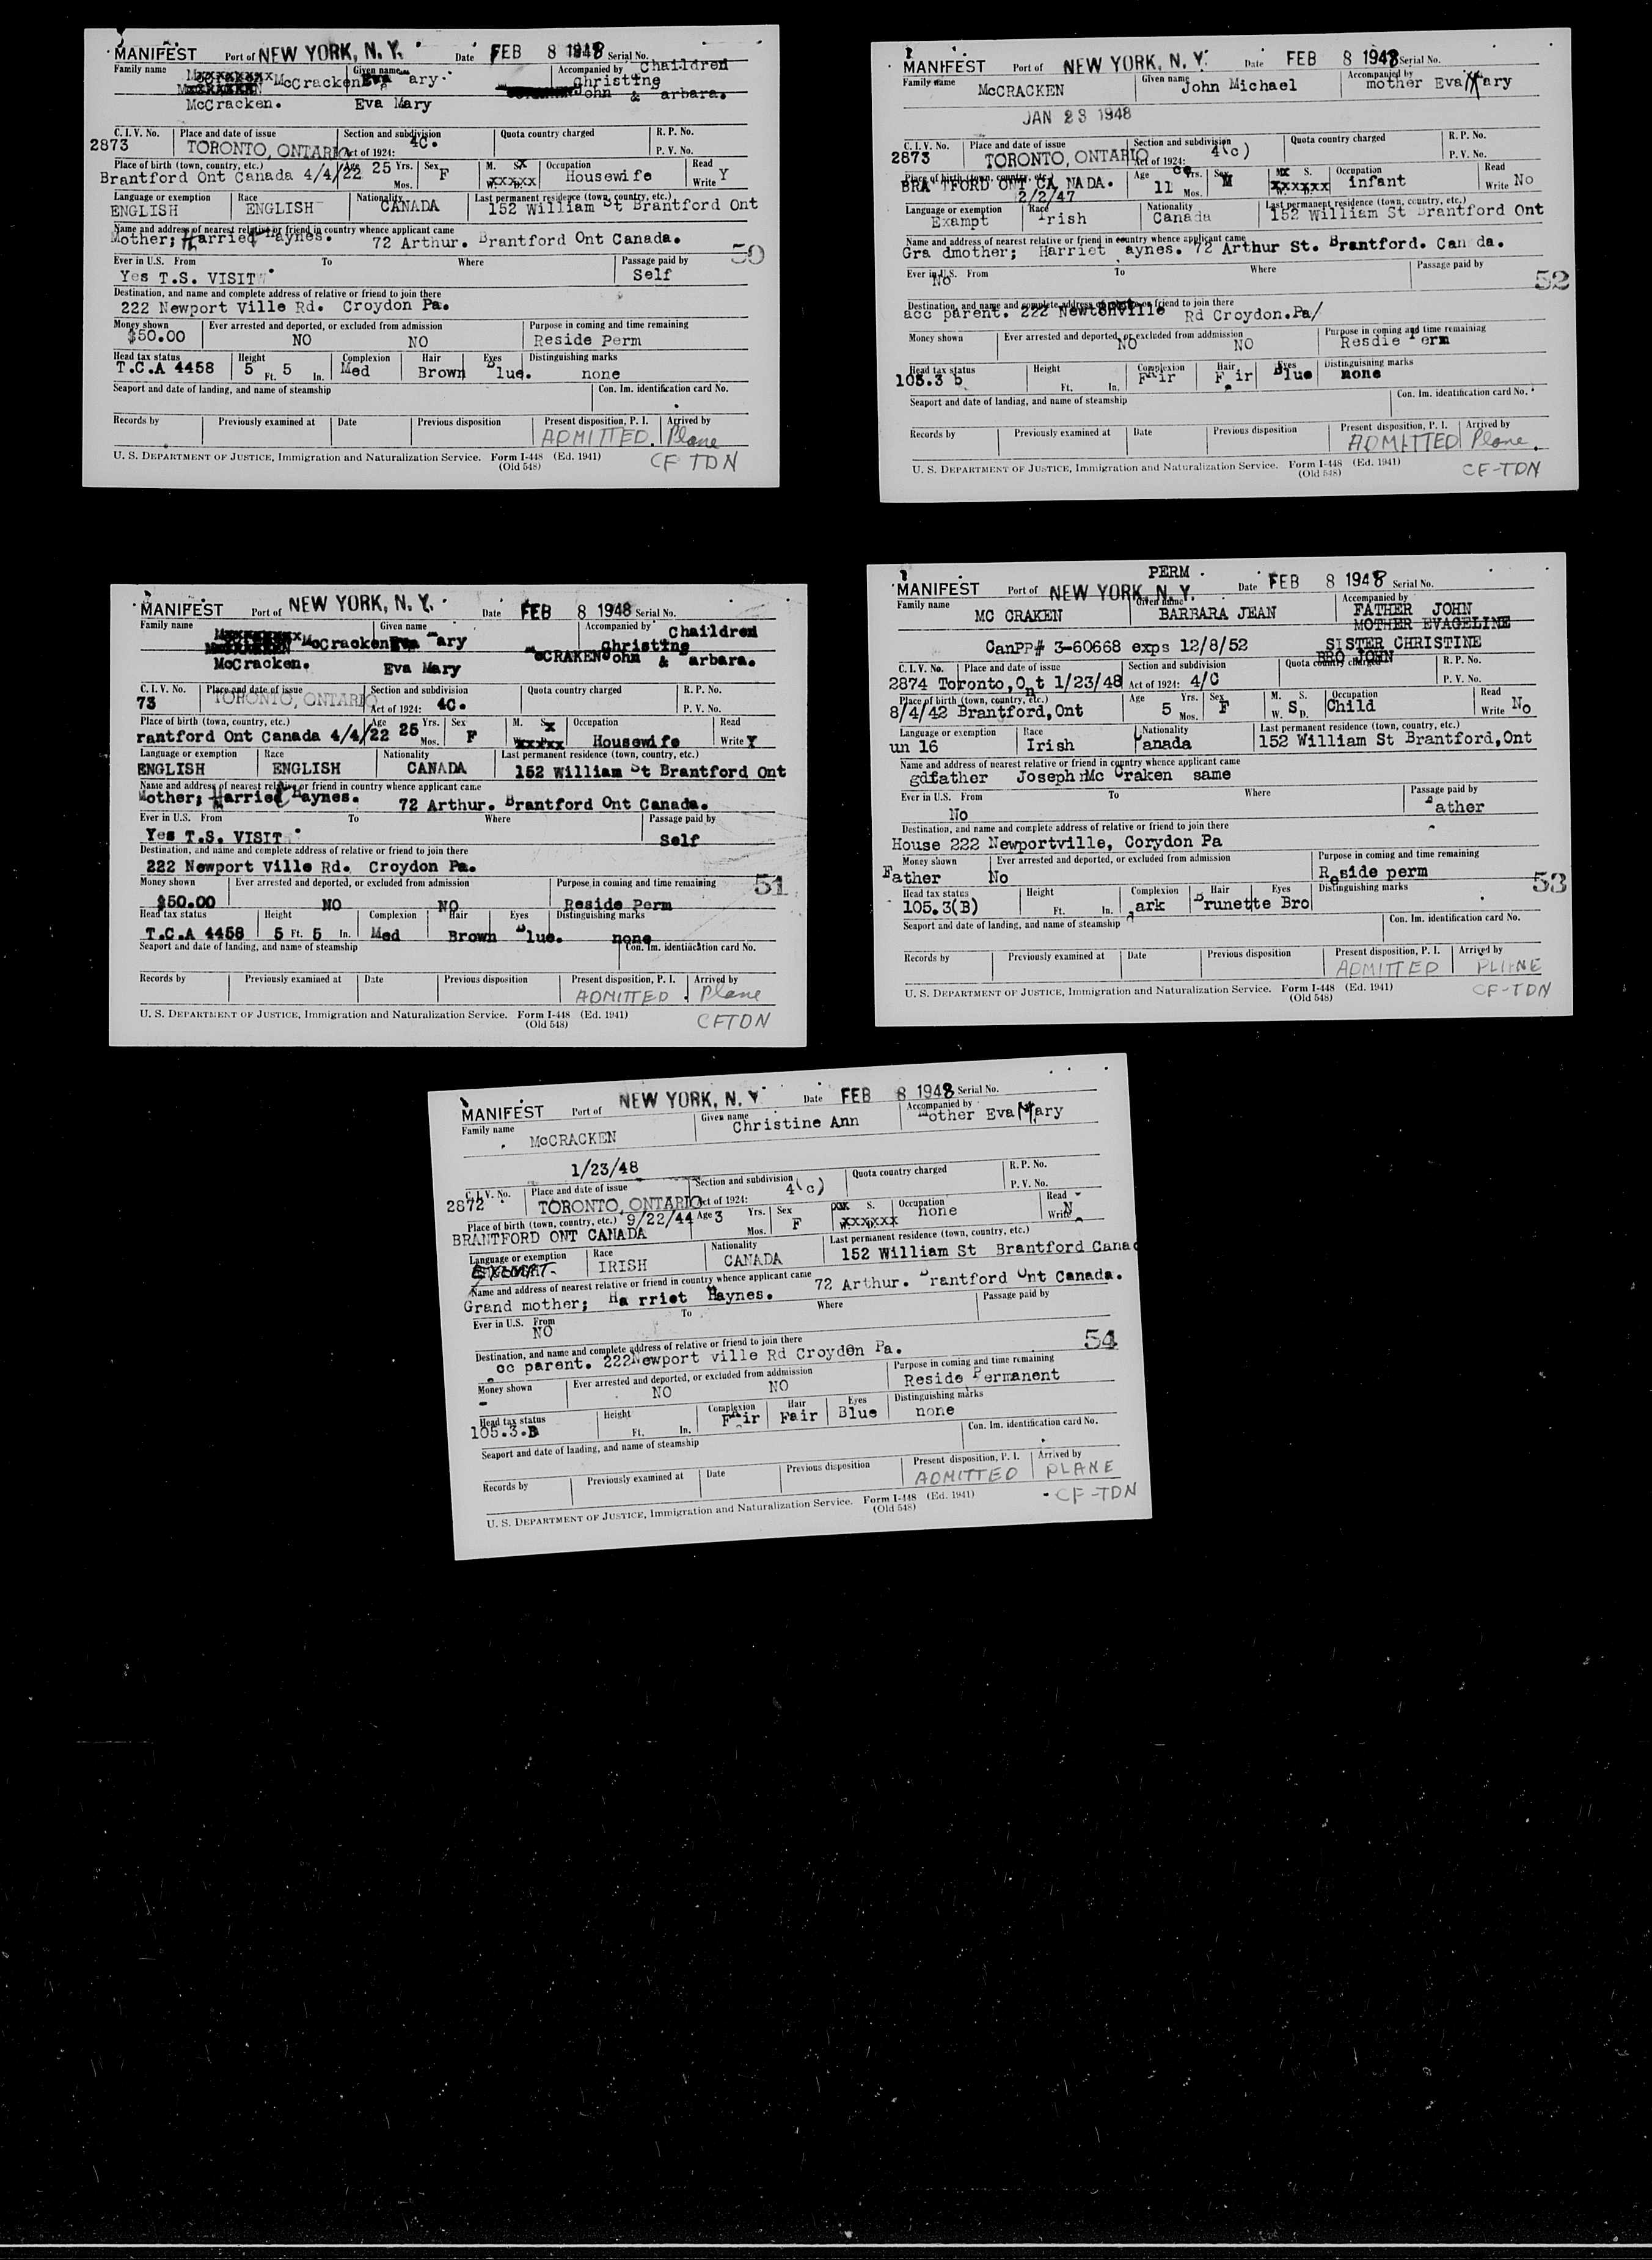 MANIFEST Port of NEW YORK, N. Y. Date FEB 8 1948 Serial No.
Family name McCracken Given name Eva ary Accompanied by Chaildren
Christine
John & arbara.
McCracken. Eva Mary
C. I. V. No. Place and date of issue Section and subdivision Quota country charged R. P. No.
2873 TORONTO, ONTARIO Act of 1924: 4C. P. V. No.
Place of birth (town, country, etc.) Age Yrs. Sex M. S. Occupation Read
Brantford Ont Canada 4/4/22 25 Mos. F W. D. xxxxx Housewife Write Y
Language or exemption Race Nationality Last permanent residence (town, country, etc.)
ENGLISH ENGLISH CANADA 152 William St Brantford Ont
Name and address of nearest relative or friend in country whence applicant came
Mother; Harried Haynes. 72 Arthur. Brantford Ont Canada.
50
Ever in U.S. From To Where Passage paid by
Yes T.S. VISIT Self
Destination, and name and complete address of relative or friend to join there
222 Newport Ville Rd. Croydon Pa.
Money shown Ever arrested and deported, or excluded from admission Purpose in coming and time remaining
$50.00 NO NO Reside Perm
Head tax status Height Complexion Hair Eyes Distinguishing marks
T.C.A 4458 5 Ft. 5 In. Med Brown Blue. none
Seaport and date of landing, and name of steamship Con. Im. identification card No.
Records by Previously examined at Date Previous disposition Present disposition, P. I. Arrived by
ADMITTED. Plane
U. S. DEPARTMENT OF JUSTICE, Immigration and Naturalization Service. Form I-448 (Ed. 1941)
(Old 548) CF TDN
MANIFEST Port of NEW YORK, N. Y. Date FEB 8 1948 Serial No.
Family name McCRACKEN Given name John Michael Accompanied by mother Eva Mary
JAN 23 1948
C. I. V. No. Place and date of issue Section and subdivision Quota country charged R. P. No.
2873 TORONTO, ONTARIO Act of 1924: 4(c) P. V. No.
Place of birth (town, country, etc.) Age Yrs. Sex M. S. Occupation Read
BRA TFORD ONT CA NADA. 11 Mos. M xxxxxx infant Write No
2/2/47
Language or exemption Race Nationality Last permanent residence (town, country, etc.)
Exampt Irish Canada 152 William St Brantford Ont
Name and address of nearest relative or friend in country whence applicant came
Gra dmother; Harriet aynes. 72 Arthur St. Brantford. Can da.
Ever in U.S. From To Where Passage paid by
No
52
Destination, and name and complete address of relative or friend to join there
acc parent. 222 Newtonville Rd Croydon.Pa/
Money shown Ever arrested and deported, or excluded from admission Purpose in coming and time remaining
NO NO Resdie Perm
Head tax status Height Complexion Hair Eyes Distinguishing marks
105.3 b Ft. In. Fair F ir Blue none
Seaport and date of landing, and name of steamship Con. Im. identification card No.
Records by Previously examined at Date Previous disposition Present disposition, P. I. Arrived by
ADMITTED Plane.
U. S. DEPARTMENT OF JUSTICE, Immigration and Naturalization Service. Form I-448 (Ed. 1941)
(Old 548) CF-TDN
MANIFEST Port of NEW YORK, N. Y. Date FEB 8 1948 Serial No.
Family name McCracken Given name Eva ary Accompanied by Chaildren
Christine
cCRAKEN John & arbara.
McCracken. Eva Mary
C. I. V. No. Place and date of issue Section and subdivision Quota country charged R. P. No.
73 TORONTO, ONTARIO Act of 1924: 4C. P. V. No.
Place of birth (town, country, etc.) Age Yrs. Sex M. S. Occupation Read
rantford Ont Canada 4/4/22 25 Mos. F xxxxx Housewife Write Y
Language or exemption Race Nationality Last permanent residence (town, country, etc.)
ENGLISH ENGLISH CANADA 152 William St Brantford Ont
Name and address of nearest relative or friend in country whence applicant came
Mother; Harried Haynes. 72 Arthur. Brantford Ont Canada.
Ever in U.S. From To Where Passage paid by
Yes T.S. VISIT Self
Destination, and name and complete address of relative or friend to join there
222 Newport Ville Rd. Croydon Pa.
Money shown Ever arrested and deported, or excluded from admission Purpose in coming and time remaining
51
$50.00 NO NO Reside Perm
Head tax status Height Complexion Hair Eyes Distinguishing marks
T.C.A 4458 5 Ft. 5 In. Med Brown Blue. none
Seaport and date of landing, and name of steamship Con. Im. identification card No.
Records by Previously examined at Date Previous disposition Present disposition, P. I. Arrived by
ADMITTED. Plane
U. S. DEPARTMENT OF JUSTICE, Immigration and Naturalization Service. Form I-448 (Ed. 1941)
(Old 548) CFTDN
PERM
MANIFEST Port of NEW YORK, N. Y. Date FEB 8 1948 Serial No.
Family name Given name Accompanied by
MC CRAKEN BARBARA JEAN FATHER JOHN
MOTHER EVAGELINE
CanPP# 3-60668 exps 12/8/52 SISTER CHRISTINE
BRO JOHN
C. I. V. No. Place and date of issue Section and subdivision Quota country charged R. P. No.
2874 Toronto,Ont 1/23/48 Act of 1924: 4/C P. V. No.
Place of birth (town, country, etc.) Age Yrs. Sex M. S. Occupation Read
8/4/42 Brantford,Ont 5 Mos. F W. S D. Child Write No
Language or exemption Race Nationality Last permanent residence (town, country, etc.)
un 16 Irish Canada 152 William St Brantford,Ont
Name and address of nearest relative or friend in country whence applicant came
gdfather Joseph Mc Craken same
Ever in U.S. From To Where Passage paid by
No Father
Destination, and name and complete address of relative or friend to join there
House 222 Newportville, Corydon Pa
Money shown Ever arrested and deported, or excluded from admission Purpose in coming and time remaining
Father No Reside perm
53
Head tax status Height Complexion Hair Eyes Distinguishing marks
105.3(B) Ft. In. ark Brunette Bro
Seaport and date of landing, and name of steamship Con. Im. identification card No.
Records by Previously examined at Date Previous disposition Present disposition, P. I. Arrived by
ADMITTED PLANE
U. S. DEPARTMENT OF JUSTICE, Immigration and Naturalization Service. Form I-448 (Ed. 1941)
(Old 548) CF-TDN
MANIFEST Port of NEW YORK, N. Y Date FEB 8 1948 Serial No.
Family name McCRACKEN Given name Christine Ann Accompanied by Mother Eva Mary
1/23/48
C. I. V. No. Place and date of issue Section and subdivision Quota country charged R. P. No.
2872 TORONTO, ONTARIO Act of 1924: 4(c) P. V. No.
Place of birth (town, country, etc.) 9/22/44 Age 3 Yrs. Sex S. Occupation Read
BRANTFORD ONT CANADA Mos. F xxxxxx none Write N
Language or exemption Race Nationality Last permanent residence (town, country, etc.)
EXEMPT- IRISH CANADA 152 William St Brantford Canad
Name and address of nearest relative or friend in country whence applicant came
Grand mother; Ha rriet Haynes. 72 Arthur. Brantford Ont Canada.
Ever in U.S. From To Where Passage paid by
NO
54
Destination, and name and complete address of relative or friend to join there
cc parent. 222Newport ville Rd Croydon Pa.
Money shown Ever arrested and deported, or excluded from admission Purpose in coming and time remaining
- NO NO Reside Permanent
Head tax status Height Complexion Hair Eyes Distinguishing marks
105.3.B Ft. In. Fair Fair Blue none
Seaport and date of landing, and name of steamship Con. Im. identification card No.
Records by Previously examined at Date Previous disposition Present disposition, P. I. Arrived by
ADMITTED PLANE
U. S. DEPARTMENT OF JUSTICE, Immigration and Naturalization Service. Form I-448 (Ed. 1941)
(Old 548) - CF-TDN